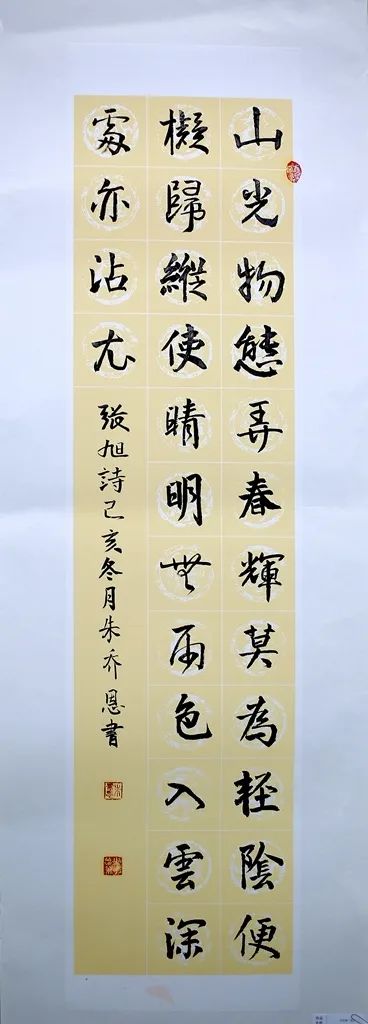 山光物態弄春輝莫為輕陰便
擬歸縱使晴明無雨色入雲深
處亦沾衣
張旭詩己亥冬月朱乔恩書